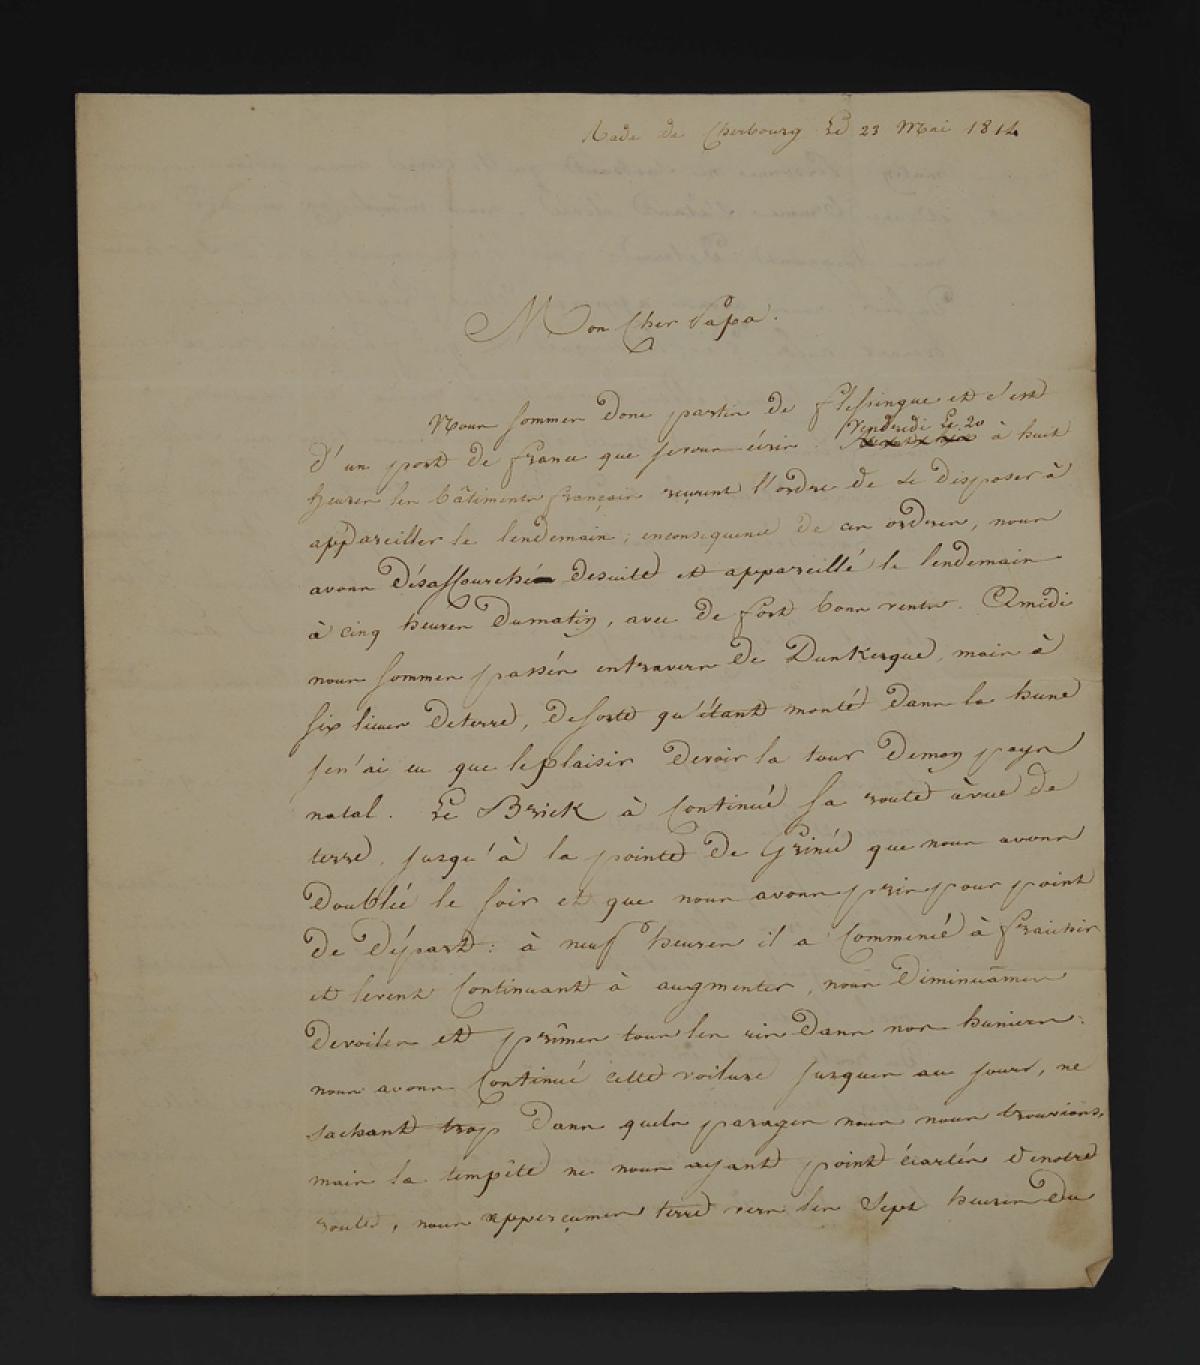 Rade de Cherbourg Le 23 Mai 1814
Mon Cher Papa.
Nous sommes donc partis de flessingue et c'est
Vendredi Le 20
d'un port de france que je vous écris. à huit
heures les bâtiments français reçurent l'ordre de se disposer à
appareiller le lendemain; enconsequence de ces ordres, nous
avons désaffourché desuite et appareillé le lendemain
à cinq heures dumatin, avec de fort bons vents. Amidi
nous sommes passés entravers de Dunkerque, mais à
six lieues deterre, desorte qu'étant monté dans la hune
je n'ai eu que leplaisir devoir la tour demon pays
natal. Le Brick à continué sa route àvue de
terre, jusqu'à la pointe de Grinée que nous avons
doublée le soir et que nous avons pris pour point
de départ: à neuf heures il a commencé à fraichir
et levent continuant à augmenter, nous diminuâmes
devoiles et prîmes tous les ris dans nos huniers:
nous avons continué cette voilure jusques au jour, ne
sachant trop dans quels parages nous nous trouvions,
mais la tempête ne nous ayant point écartés denotre
route, nous apperçumes terre vers les sept heures du